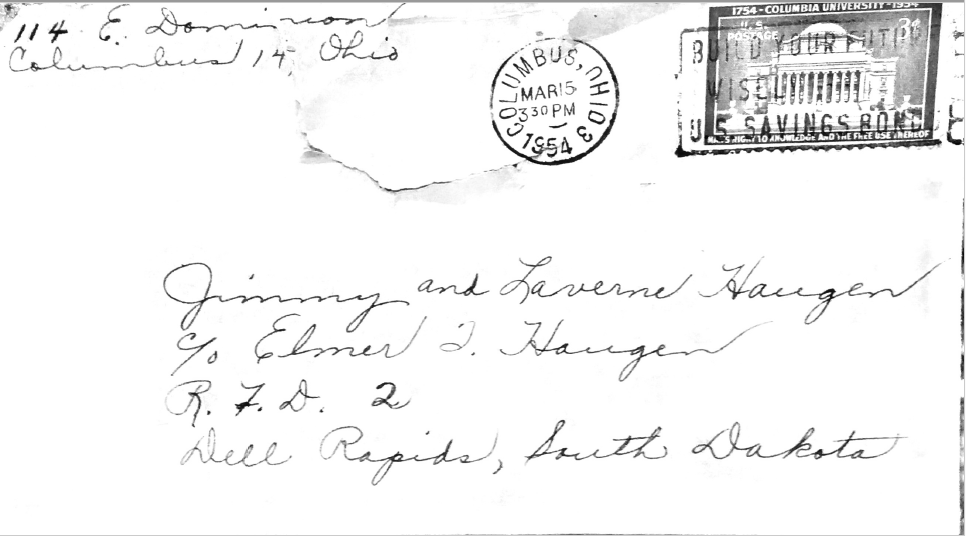 114 E. Dominion
Columbus 14, Ohio
COLUMBUS, OHIO 3
MAR 15
3 30 PM
1954
1754 - COLUMBIA UNIVERSITY - 1954
U.S. POSTAGE 3¢
BUILD YOUR FUTURE
WISELY
U.S. SAVINGS BOND
MAN'S RIGHT TO KNOWLEDGE AND THE FREE USE THEREOF
Jimmy and Laverne Haugen
c/o Elmer T. Haugen
R. F. D. 2
Dell Rapids, South Dakota